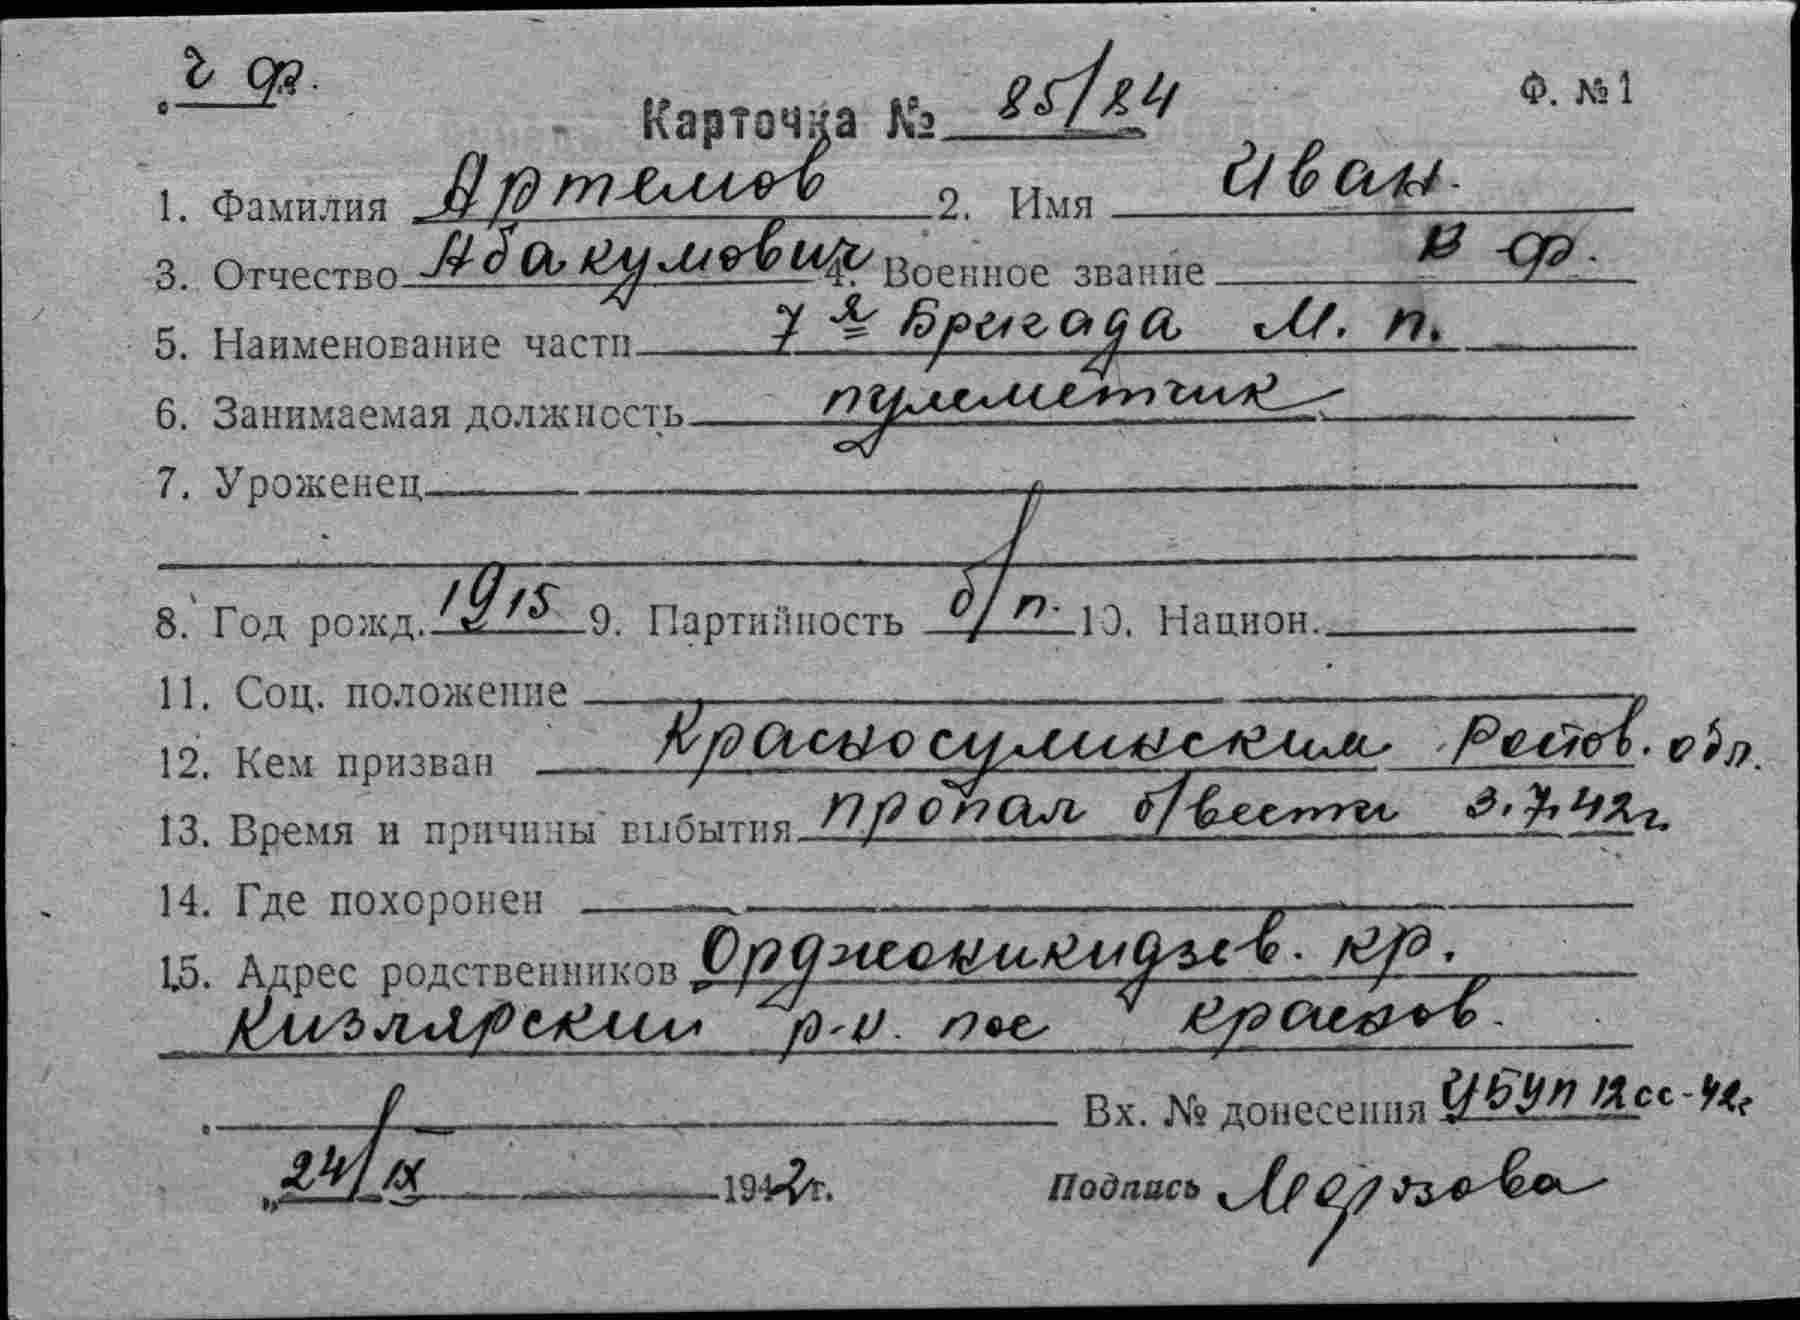 ч ф.
Ф. №1
Карточка № 85/84
1. Фамилия Артемов 2. Имя Иван.
3. Отчество Абакумович 4. Военное звание к ф.
5. Наименование части 7я Бригада М. п.
6. Занимаемая должность пулеметчик
7. Уроженец
8. Год рожд. 1915 9. Партийность б/п. 10. Национ.
11. Соц. положение
12. Кем призван Красносулинским Ростов. обл.
13. Время и причины выбытия пропал б/вести 3.7.42г.
14. Где похоронен
15. Адрес родственников Орджоникидзев. кр.
Кизлярский р-н. пос Краснов.
Вх. № донесения УБУП 12сс-42г
„24/IX 1942г. Подпись